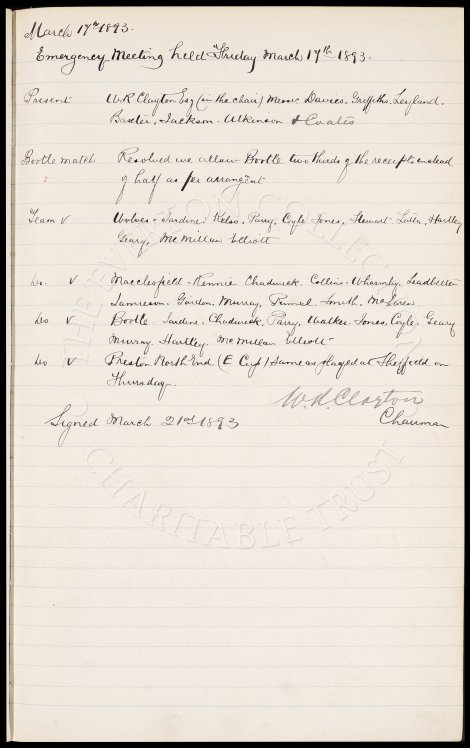 March 17th 1893.
Emergency Meeting held Friday March 17th 1893.
Present W R Clayton Esq (in the chair) Messrs Davies, Griffiths, Leyland,
Baxter, Jackson, Atkinson & Coates
Bootle match Resolved we allow Bootle two thirds of the receipts instead
of half as per arrangent
Team v Wolves. Jardine, Kelso, Parry, Coyle, Jones, Stewart, Latta, Hartley
Geary, McMillan Elliott
Do. v Macclesfield. Rennie Chadwick Collins, Wharmby, Leadbetter
Jamieson, Gordon, Murray, Smith, McLaren.
Do v Bootle. Jardine, Chadwick, Parry, Walker, Jones, Coyle, Geary
Murray, Hartley, McMillan Elliott
Do v Preston North End (E Cup) Same as played at Sheffield on
Thursday.
W.R. Clayton
Signed March 21st 1893 Chairman
THE EVERTON COLLECTION
CHARITABLE TRUST